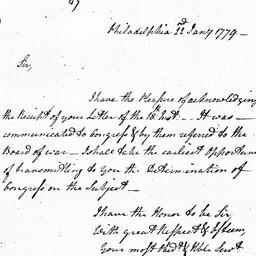 47
Philadelphia 22d Jany 1779 —
Sir,
I have the Pleasure of acknowledging
the Receipt of your Letter of the 18th Inst. — It was
communicated to Congress & by them referred to the
Board of war — I shall take the earliest Opportuni
of transmitting to you the Determination of
Congress on the Subject —
I have the Honor to be Sir,
with great Respect & Esteem,
your most Obedt. & Hble Servt